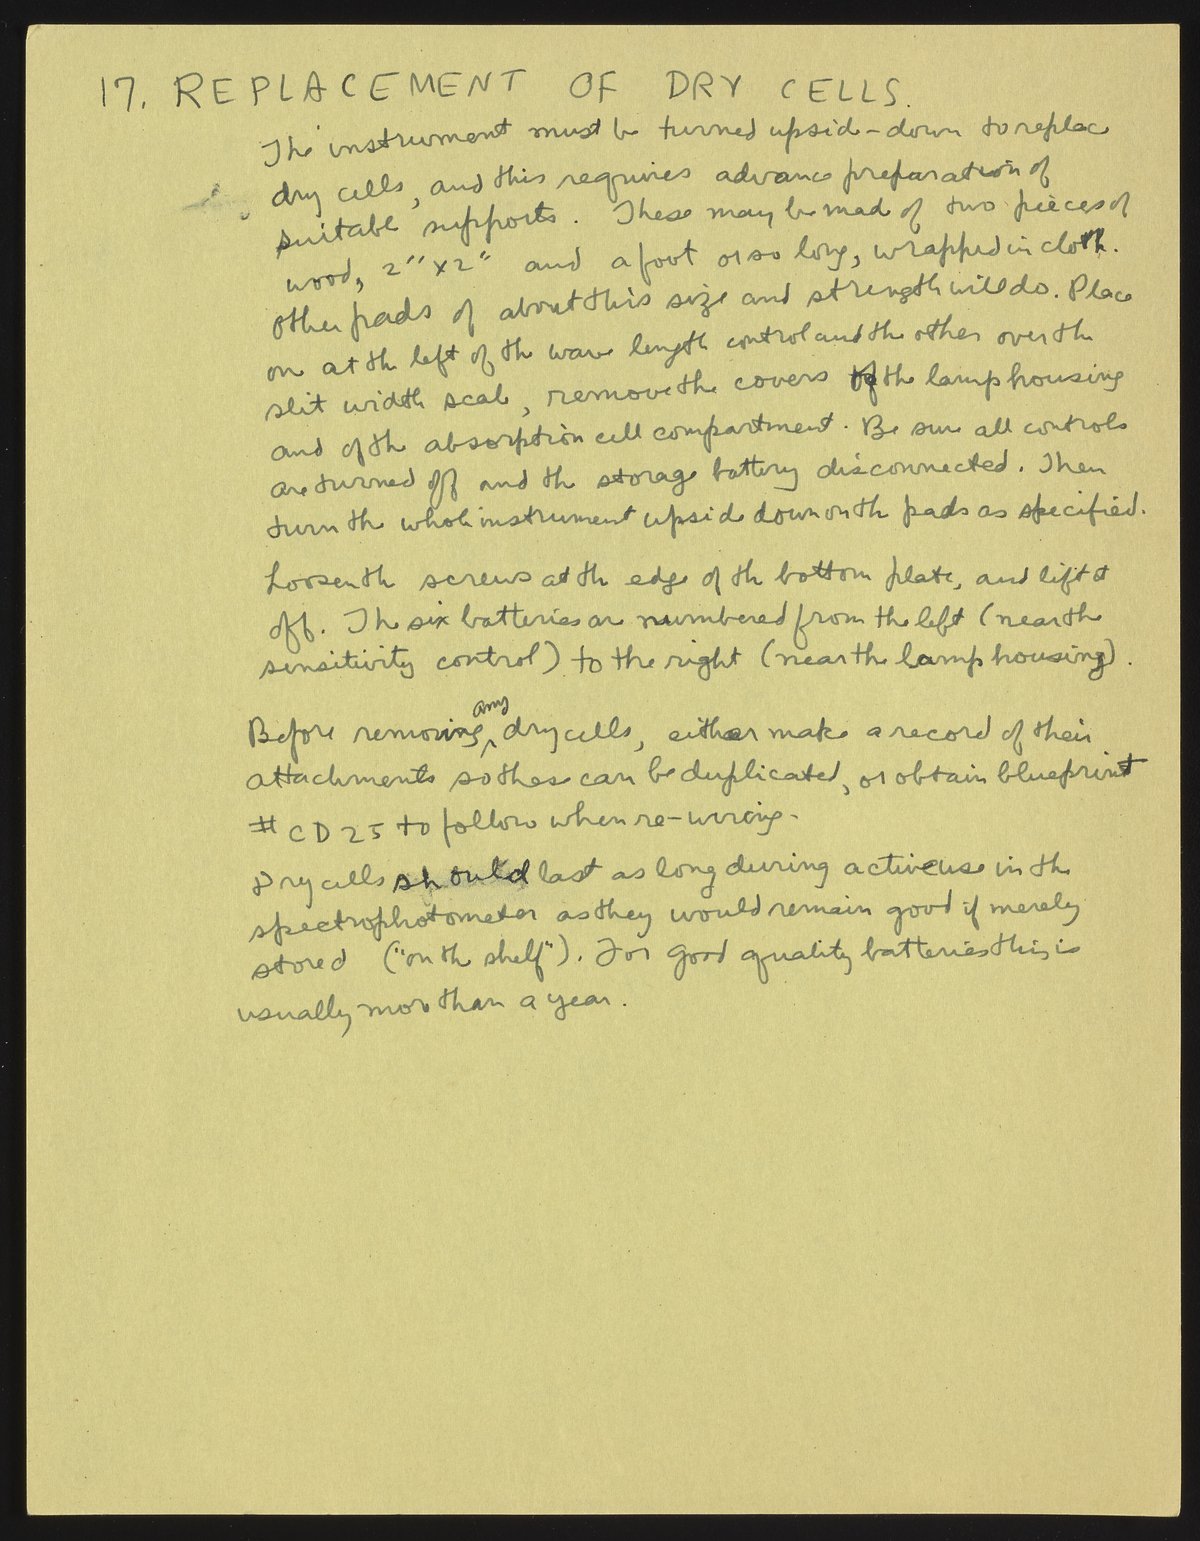 17. REPLACEMENT OF DRY CELLS.
The instrument must be turned upside-down to replace
dry cells, and this requires advance preparation of
suitable supports. These may be made of two pieces of
wood, 2" x 2" and a foot or so long, wrapped in cloth.
Other pads of about this size and strength will do. Place
one at the left of the wave length control and the other over the
slit width scale, remove the covers of the lamp housing
and of the absorption cell compartment. Be sure all controls
are turned off and the storage battery disconnected. Then
turn the whole instrument upside down on the pads as specified.
Loosen the screws at the edge of the bottom plate, and lift it
off. The six batteries are numbered from the left (near the
sensitivity control) to the right (near the lamp housing).
Before removing any dry cells, either make a record of their
attachments so these can be duplicated, or obtain blueprint
# CD 25 to follow when re-wiring.
Dry cells should last as long during active use in the
spectrophotometer as they would remain good if merely
stored ("on the shelf"). For good quality batteries this is
usually more than a year.